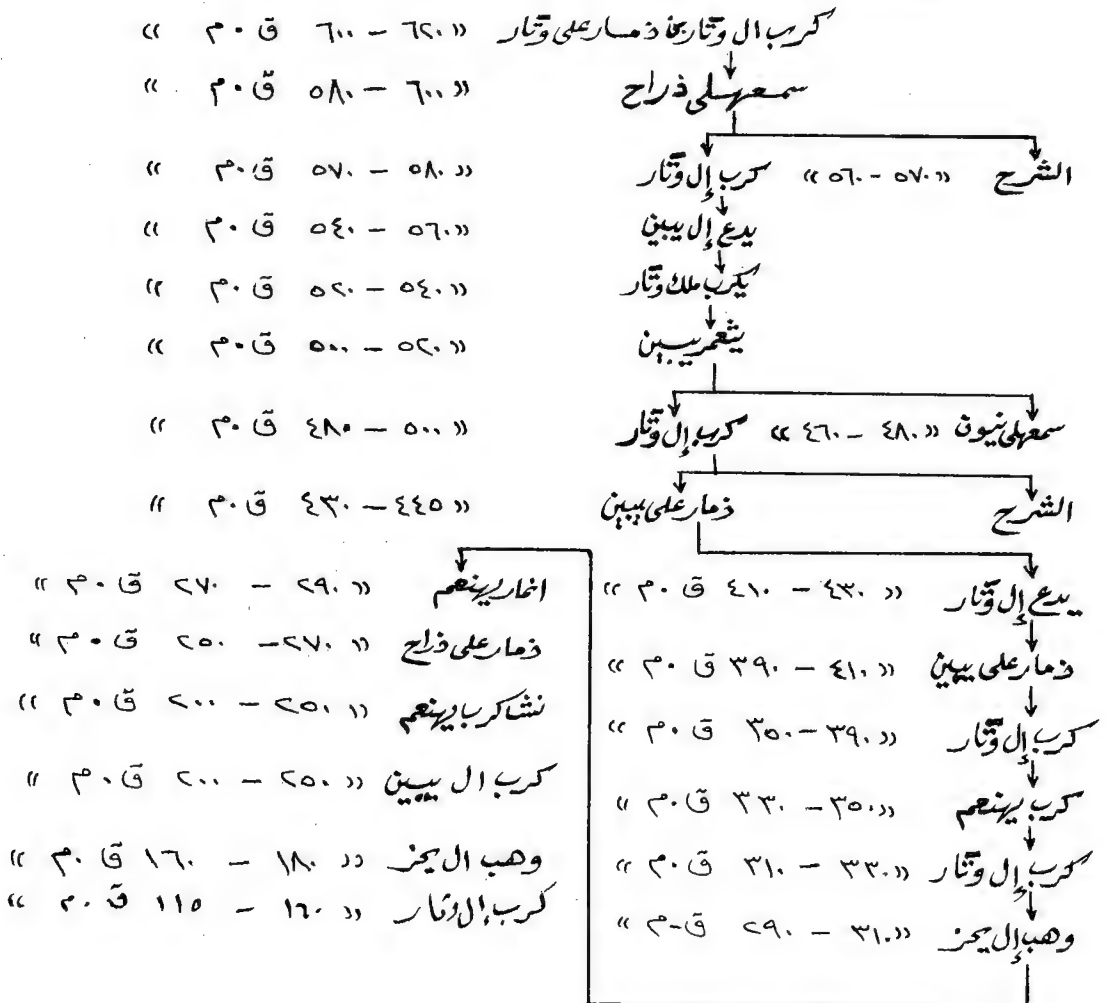 كرب ال وتار بن ذمار على وتار «٦٢٠ – ٦٠٠ ق.م»
سمعهلى ذراح «٦٠٠ – ٥٨٠ ق.م»
الشرح «٥٧٠ – ٥٦٠» كرب إل وتار «٥٨٠ – ٥٧٠ ق.م»
يدع إل يبين «٥٦٠ – ٥٤٠ ق.م»
يكرب ملك وتار «٥٤٠ – ٥٢٠ ق.م»
يثعمر يبين «٥٢٠ – ٥٠٠ ق.م»
سمعهلى نيون «٤٨٠ – ٤٦٠» كرب إل وتار «٥٠٠ – ٤٨٠ ق.م»
الشرح ذمار على يبين «٤٤٥ – ٤٣٠ ق.م»
يدع إل وتار «٤٣٠ – ٤١٠ ق.م»
ذمار على يبين «٤١٠ – ٣٩٠ ق.م»
كرب إل وتار «٣٩٠ – ٣٥٠ ق.م»
كرب يهنعم «٣٥٠ – ٣٣٠ ق.م»
كرب إل وتار «٣٣٠ – ٣١٠ ق.م»
وهب إل يحز «٣١٠ – ٢٩٠ ق-م»
انمار يهنعم «٢٩٠ – ٢٧٠ ق.م»
ذمار على ذراح «٢٧٠ – ٢٥٠ ق.م»
نشاكرب يهنعم «٢٥٠ – ٢٠٠ ق.م»
كرب ال يبين «٢٥٠ – ٢٠٠ ق.م»
وهب ال يحز «١٨٠ – ١٦٠ ق.م»
كرب إل وتار «١٦٠ – ١١٥ ق.م»